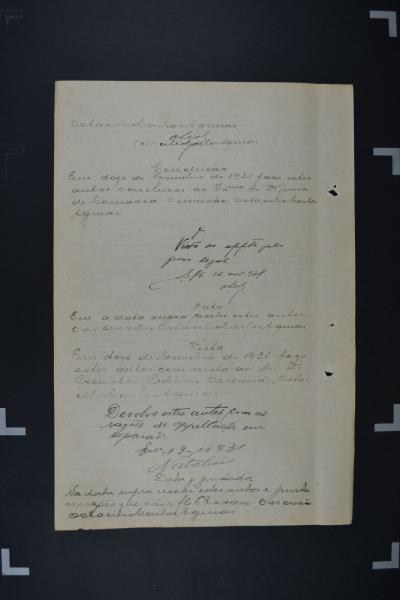 Octacilio Carlos Aguiar
Octacilio Carlos Aguiar
Conclusão
Em doze de Novembro de 1931 faço estes
autos conclusos ao Exmo Sr. Dr. Juiz
de Comarca. O escrivão Octacilio Carlos
Aguiar
Vista ao
prazo legal.
Data
Em a data supra recebi estes autos.
O escrivão, Octacilio Carlos Aguiar
Vista
Em doze de Novembro de 1931 faço
estes autos com vista ao Sr. Dr.
Promotor Publico. O escrivão, Octa-
cilio Carlos Aguiar
Devolvo estes autos com as
razões de appellação em
separado
13-11-931
Data e juntada
Na data supra recebi estes autos e junto
as razões que vão a fls e verso. O escrivão
Octacilio Carlos Aguiar